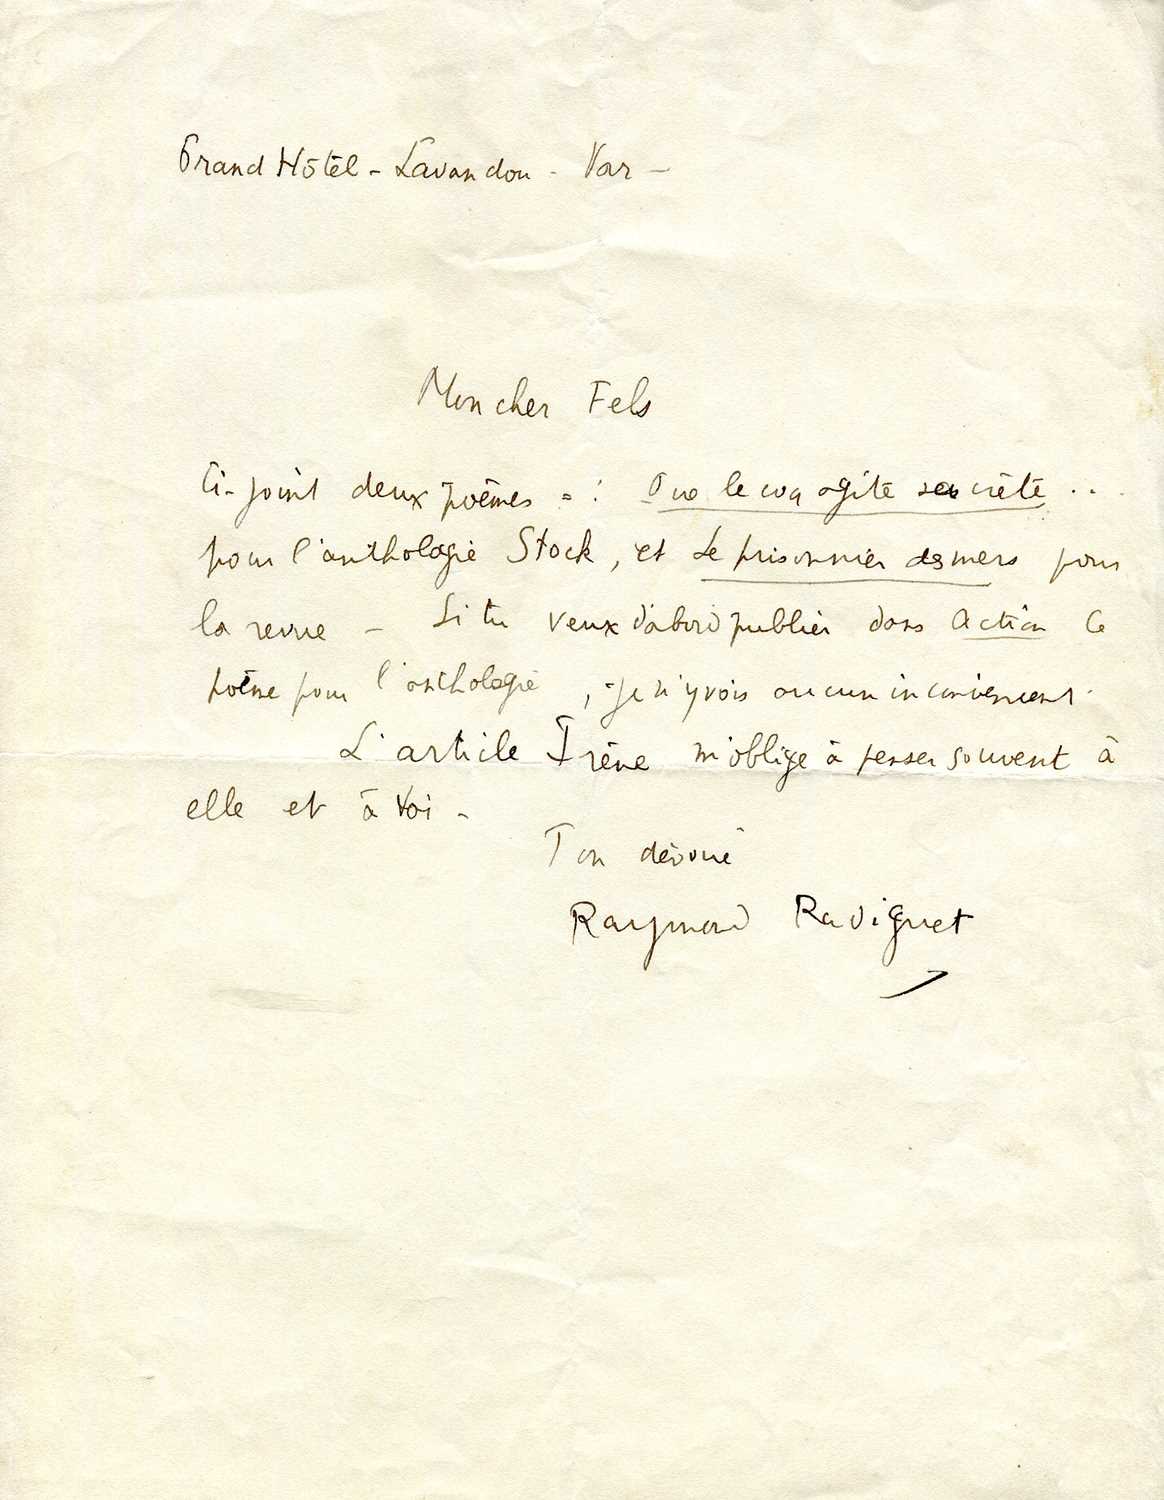 Grand Hôtel - Lavandou - Var -
Mon cher Fels
Ci-joint deux poèmes = : Que le coq agite sa crête ...
pour l'anthologie Stock, et Le prisonnier des mers pour
la revue - Si tu veux d'abord publier dans Action le
poème pour l'anthologie, je n'y vois aucun inconvénient.
L'article Irène m'oblige à penser souvent à
elle et à toi -
Ton dévoué
Raymond Radiguet